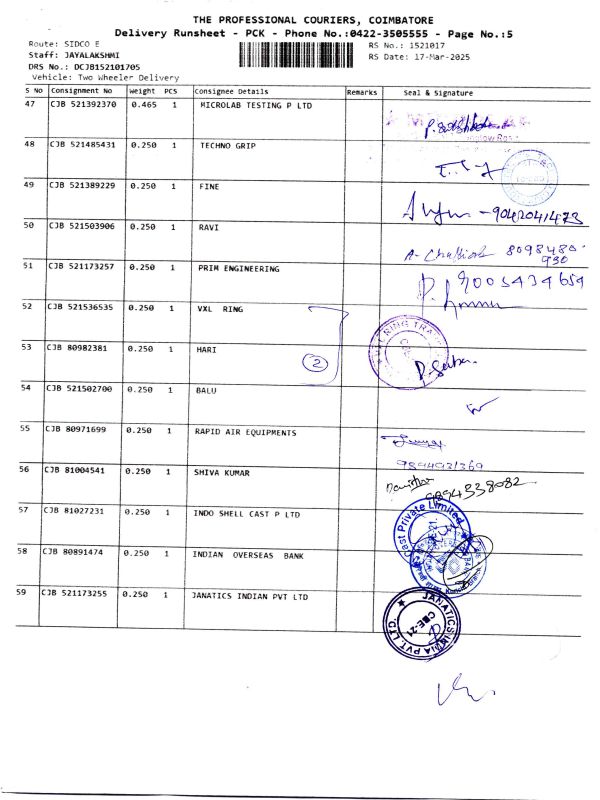 THE PROFESSIONAL COURIERS, COIMBATORE
Delivery Runsheet - PCK - Phone No.:0422-3505555 - Page No.:5
Route: SIDCO E RS No.: 1521017
Staff: JAYALAKSHMI RS Date: 17-Mar-2025
DRS No.: DCJB152101705
Vehicle: Two Wheeler Delivery
S No Consignment No Weight PCS Consignee Details Remarks Seal & Signature
47 CJB 521392370 0.465 1 MICROLAB TESTING P LTD
48 CJB 521485431 0.250 1 TECHNO GRIP
49 CJB 521389229 0.250 1 FINE
-9042041473
50 CJB 521503906 0.250 1 RAVI
8098480
930
51 CJB 521173257 0.250 1 PRIM ENGINEERING
9003434659
52 CJB 521536535 0.250 1 VXL RING
53 CJB 80982381 0.250 1 HARI
2
54 CJB 521502700 0.250 1 BALU
55 CJB 80971699 0.250 1 RAPID AIR EQUIPMENTS
56 CJB 81004541 0.250 1 SHIVA KUMAR
9894338082
57 CJB 81027231 0.250 1 INDO SHELL CAST P LTD
Cast Private Limited
58 CJB 80891474 0.250 1 INDIAN OVERSEAS BANK
59 CJB 521173255 0.250 1 JANATICS INDIAN PVT LTD
JANATICS INDIA PVT. LTD.
CBE-21